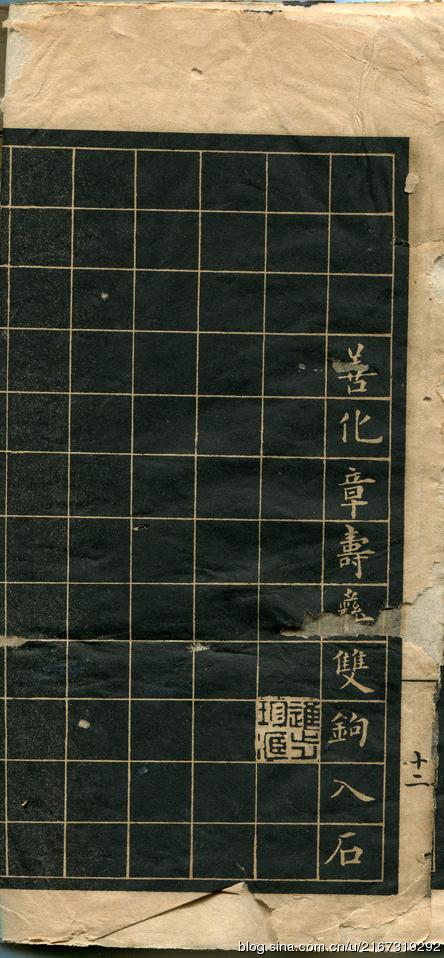 善化章壽彝雙鉤入石
十二
blog.sina.com.cn/u/2167319292